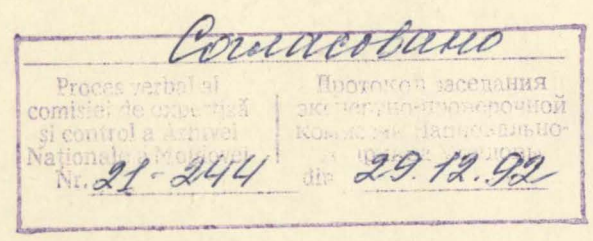 Согласовано
Proces verbal al
comisiei de expertiză
și control a Arhivei
Naționale a Moldovei
Nr. 21-244
Протокол заседания
экспертно-проверочной
комиссии Национально-
Молдовы
din 29.12.92